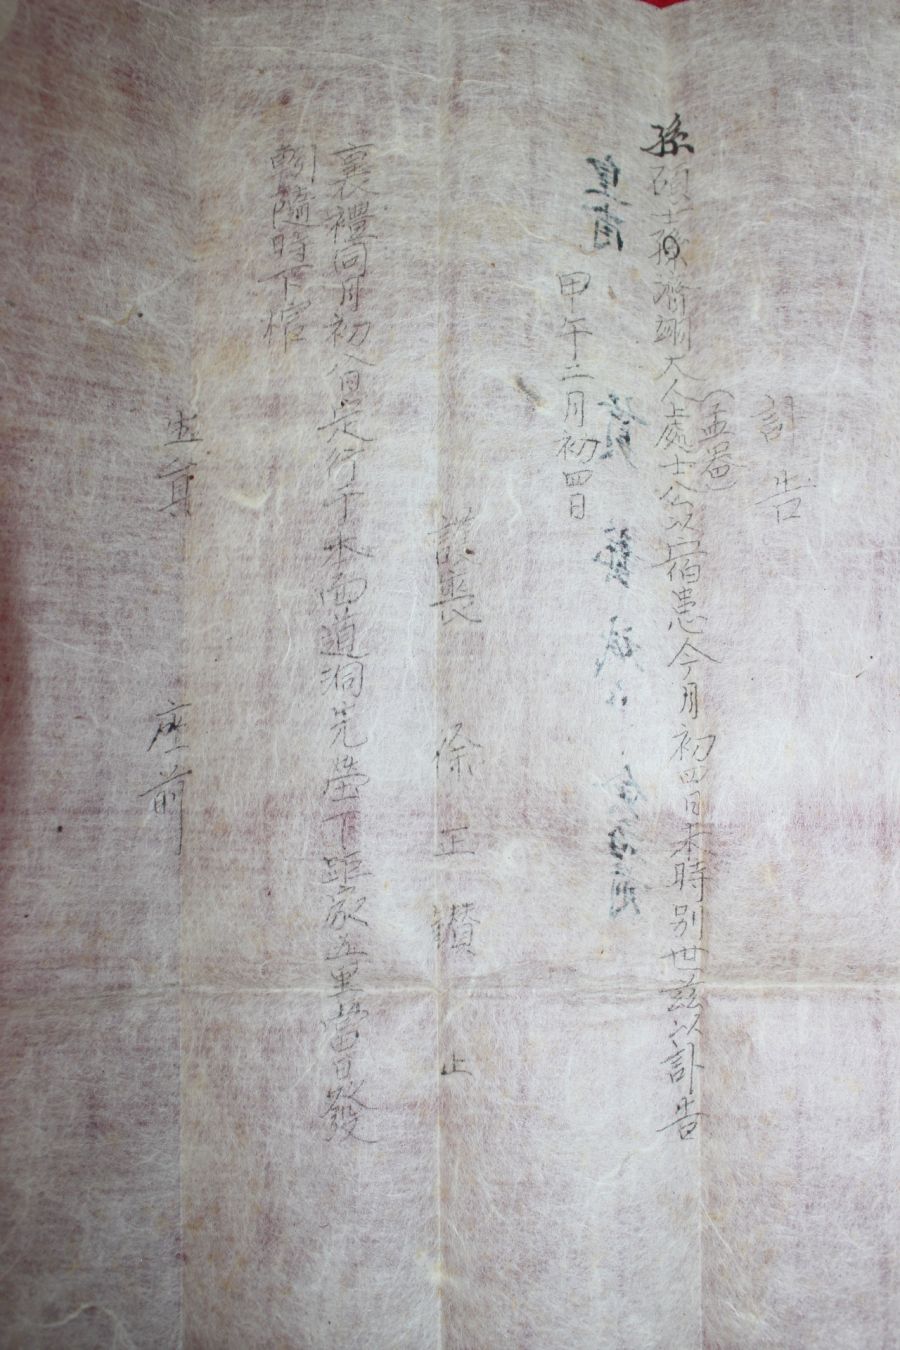 訃告
(孟器)
孫碩士孫濟翊大人處士公以宿患今月初四日未時別世玆以訃告
甲午二月初四日
護喪 徐王鑽 止
襄禮同月初八日定行于本面道洞先塋下距家五里當日發
靷隨時下棺
生員 座前